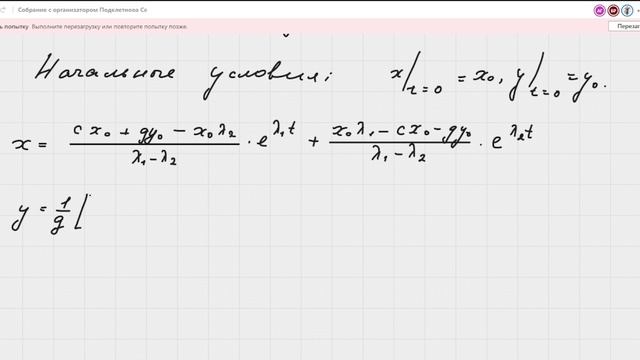 Собрание с организатором Подклетнова Се
ь попытку Выполните перезагрузку или повторите попытку позже. Перезаг
Начальные условия: x|t=0 = x₀, y|t=0 = y₀.
x = (cx₀ + gy₀ − x₀λ₂)/(λ₁−λ₂) · e^(λ₁t) + (x₀λ₁ − cx₀ − gy₀)/(λ₁−λ₂) · e^(λ₂t)
y = 1/g [